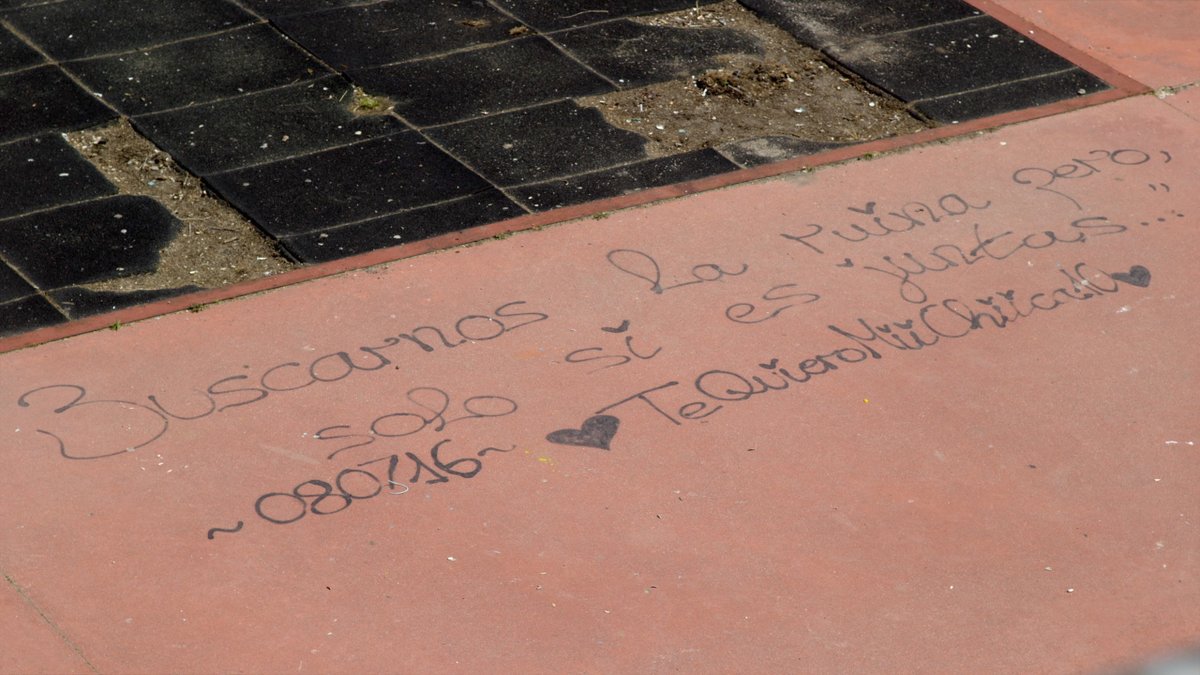 Buscarnos la ruina pero,
solo si es juntas...
~080716~ ♥TeQuieroMiiChiicaAC♥